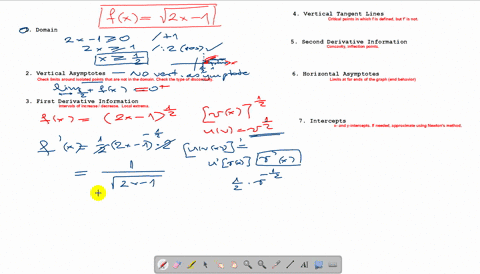 f(x) = √2x-1
0. Domain
2x-1 ≥ 0 /+1
2x ≥ 1 /:2 (>0)
x ≥ 1/2
2. Vertical Asymptotes — No vert. asymptote
Check limits around isolated points that are not in the domain. Check the type of discontinuity.
f(x) = 0+
3. First Derivative Information
Intervals of increase / decrease. Local extrema.
f(x) = (2x-1)^1/2
f'(x) = 1/2 (2x-1)^-1/2 · 2
= 1/√2x-1
[v(x)]^1/2
u(v) = v^1/2
[u(v(x))]' =
u'[v(x)] v'(x)
1/2 · v^-1/2
4. Vertical Tangent Lines
Critical points in which f is defined, but f' is not.
5. Second Derivative Information
Concavity, Inflection points.
6. Horizontal Asymptotes
Limits at far ends of the graph (end behavior)
7. Intercepts
x- and y-intercepts. If needed, approximate using Newton's method.